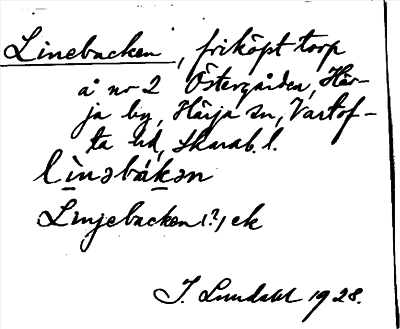 Linebacken, friköpt torp
å nr 2 Östergården, Här-
ja by, Härja sn, Vartof-
ta hd, Skarab. l.
lìnəbákən
Linjebacken (?) ek
J. Lundahl 1928.